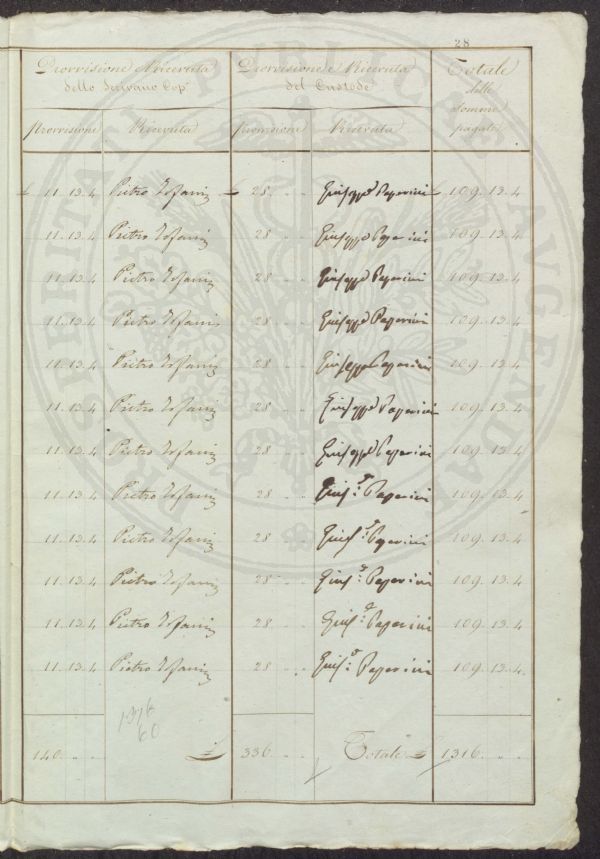 28
Provvisione e Ricevuta dello Scrivano Cop.ª | Provvisione e Ricevuta del Custode | Totale delle somme pagate
Provvisione | Ricevuta | Provvisione | Ricevuta
£ 11. 13. 4 Pietro Tofanii £ 28. .. .. Giuseppe Paperini £ 109. 13. 4
11. 13. 4 Pietro Tofanii 28 .. .. Giuseppe Paperini 109. 13. 4
11. 13. 4 Pietro Tofanii 28 .. .. Giuseppe Paperini 109. 13. 4
11. 13. 4 Pietro Tofanii 28 .. .. Giuseppe Paperini 109. 13. 4
11. 13. 4 Pietro Tofanii 28 .. .. Giuseppe Paperini 109. 13. 4
11. 13. 4 Pietro Tofanii 28 .. .. Giuseppe Paperini 109. 13. 4
11. 13. 4 Pietro Tofanii 28 .. .. Giuseppe Paperini 109. 13. 4
11. 13. 4 Pietro Tofanii 28 .. .. Gius.e Paperini 109. 13. 4
11. 13. 4 Pietro Tofanii 28 .. .. Gius.e Paperini 109. 13. 4
11. 13. 4 Pietro Tofanii 28 .. .. Gius.e Paperini 109. 13. 4
11. 13. 4 Pietro Tofanii 28 .. .. Gius.e Paperini 109. 13. 4
11. 13. 4 Pietro Tofanii 28 .. .. Gius.e Paperini 109. 13. 4
1316
60
140. .. .. £ 336 .. .. Totale £ 1316. .. ..
PUBLICAE
UTILITATI
AUGENDAE